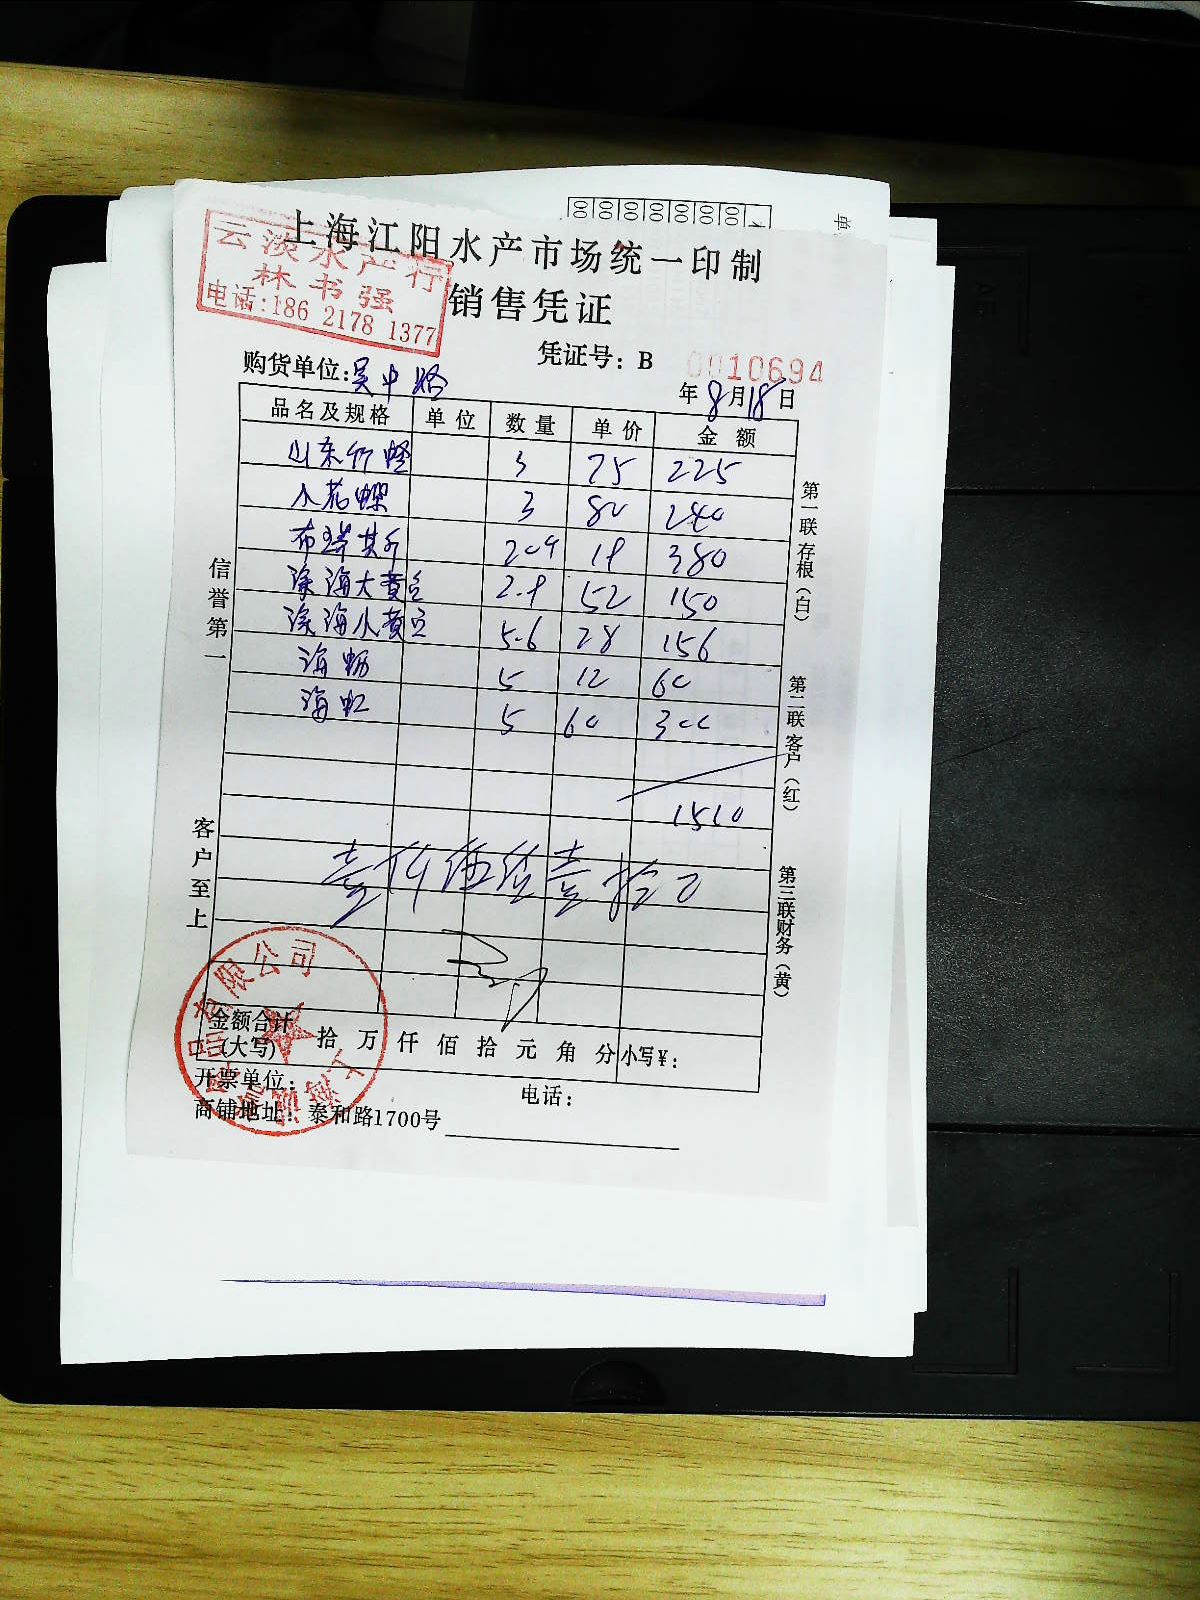 上海江阳水产市场统一印制
云淡水产行
林书强
电话:186 2178 1377
销售凭证
凭证号: B 0010694
购货单位:吴中路
年8月18日
品名及规格 单位 数量 单价 金额
山东竹蛏 3 75 225
小花螺 3 80 240
布瑞其斤 20.9 18 380
深海大黄豆 2.9 52 150
深海小黄豆 5.6 28 156
海蛎 5 12 60
海虹 5 60 300
1510
壹仟伍佰壹拾元
信誉第一
客户至上
第一联存根(白)
第二联客户(红)
第三联财务(黄)
金额合计
(大写) 拾 万 仟 佰 拾 元 角 分 小写¥:
开票单位: 电话:
商铺地址: 泰和路1700号
有限公司
上海